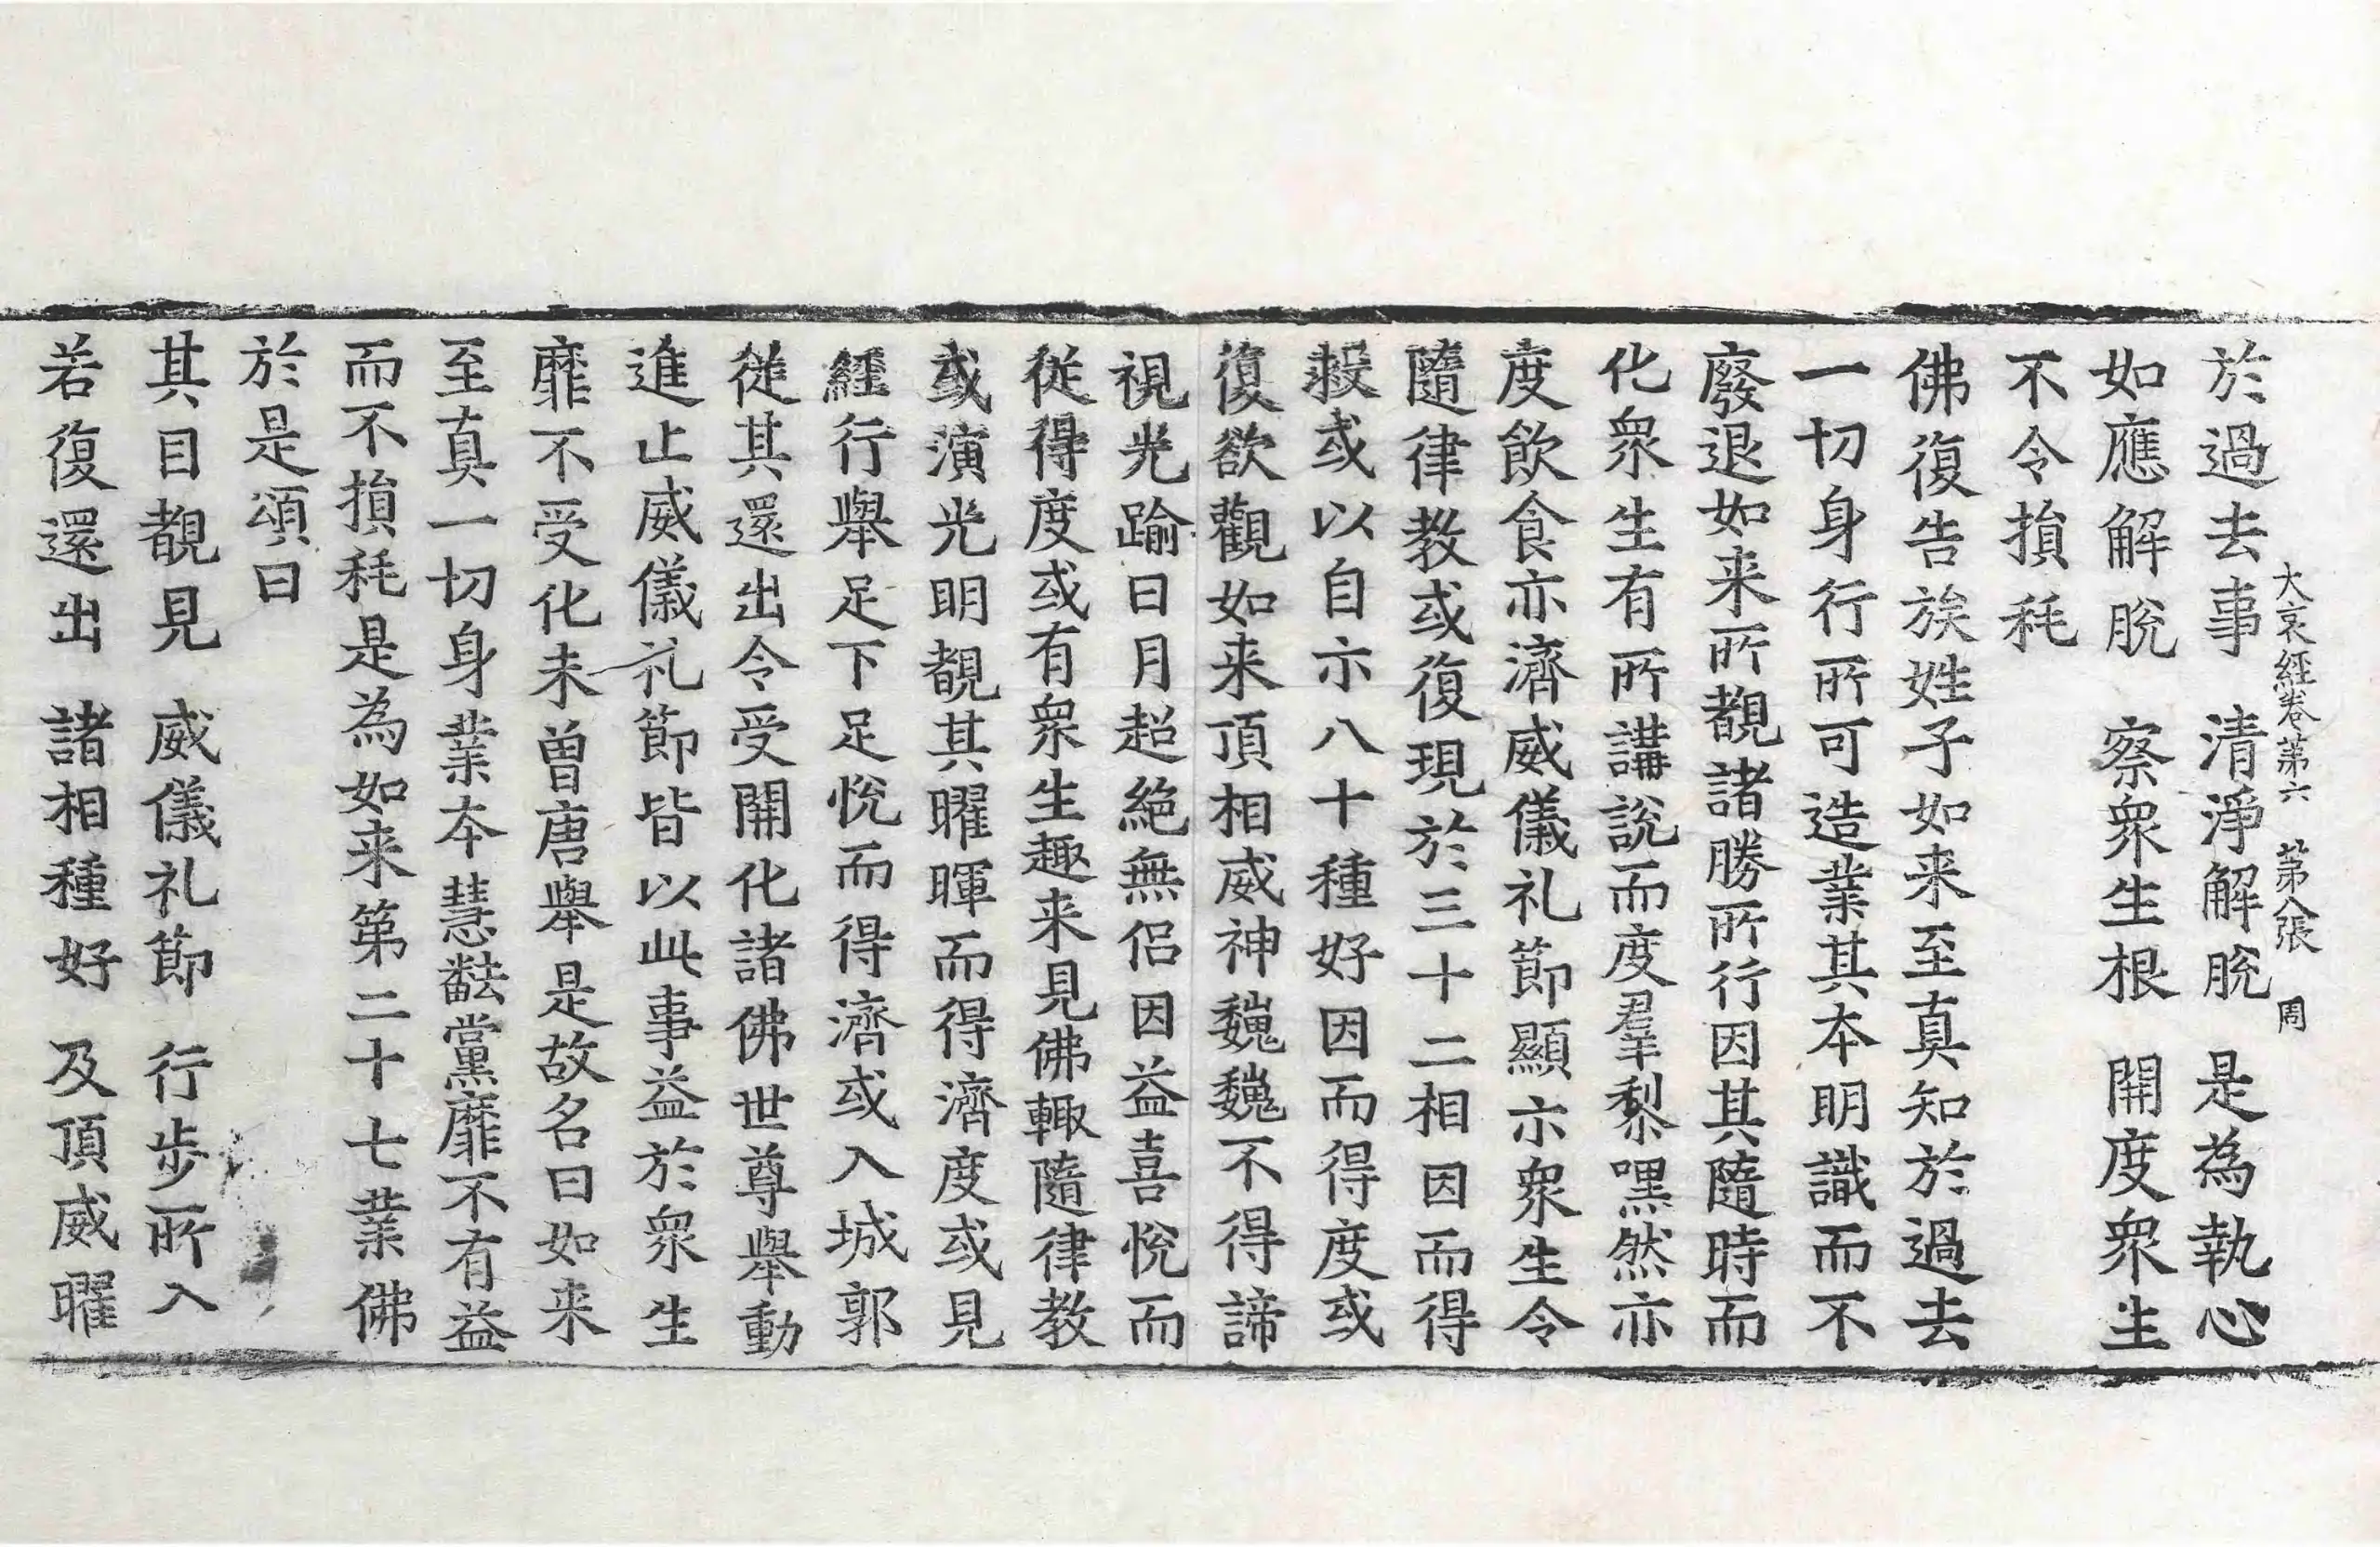 大哀經卷第六　第八張　周
於過去事　清淨解脫　是為執心
如應解脫　察衆生根　開度衆生
不令損秏
佛復告族姓子如来至真知於過去
一切身行所可造業其本明識而不
廢退如来所覩諸勝所行因其隨時而
化衆生有所講說而度羣黎嘿然亦
度飲食亦濟威儀礼節顯示衆生令
隨律教或復現於三十二相因而得
或以自示八十種好因而得度或
復欲觀如来頂相威神巍巍不得諦
視光踰日月超絶無侶因益喜悅而
從得度或有衆生趣来見佛輙隨律教
或演光明覩其曜暉而得濟度或見
經行舉足下足悅而得濟或入城郭
從其還出令受開化諸佛世尊舉動
進止威儀礼節皆以此事益於衆生
靡不受化未曽唐舉是故名曰如来
至真一切身業本慧黨靡不有益
而不損秏是為如来第二十七業佛
於是頌曰
其目覩見　威儀礼節　行步所入
若復還出　諸相種好　及頂威曜